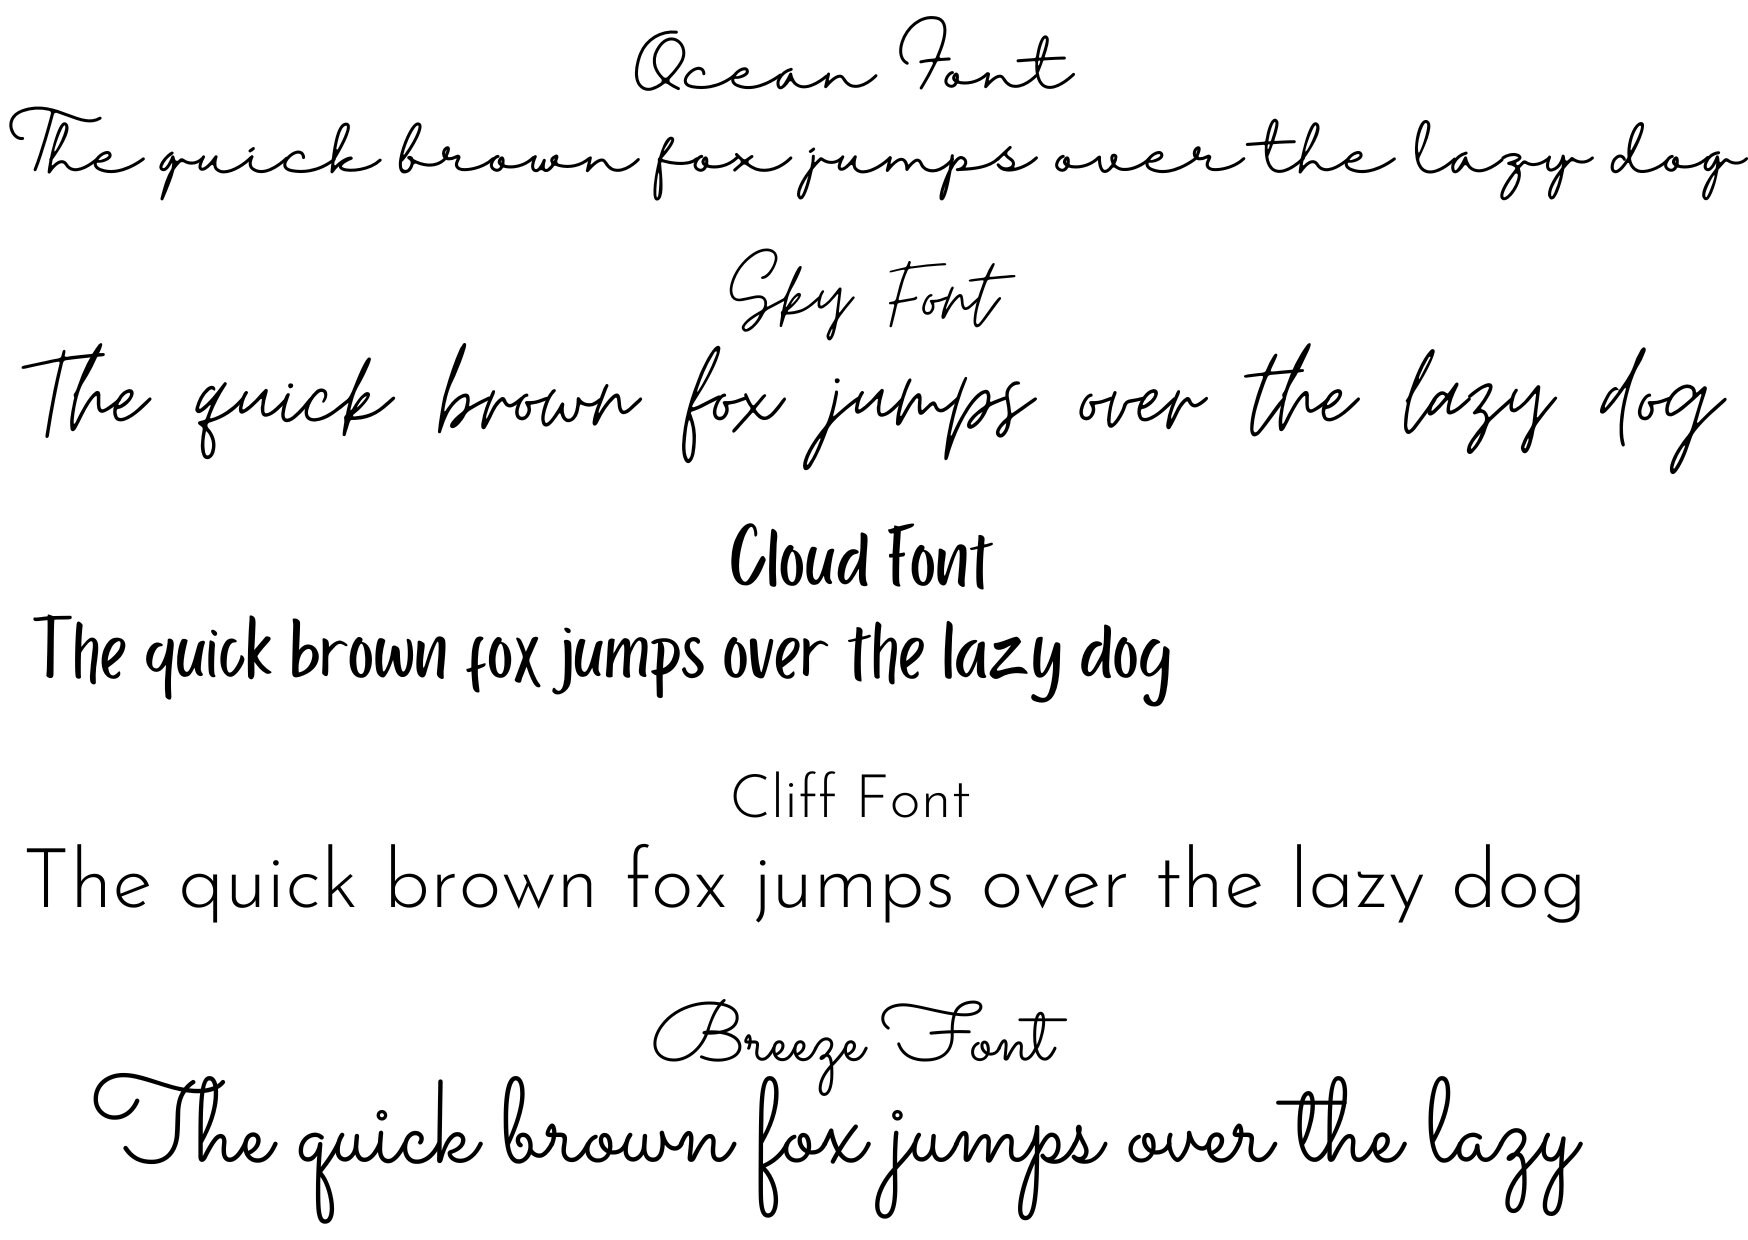 Ocean Font
The quick brown fox jumps over the lazy dog
Sky Font
The quick brown fox jumps over the lazy dog
Cloud Font
The quick brown fox jumps over the lazy dog
Cliff Font
The quick brown fox jumps over the lazy dog
Breeze Font
The quick brown fox jumps over the lazy